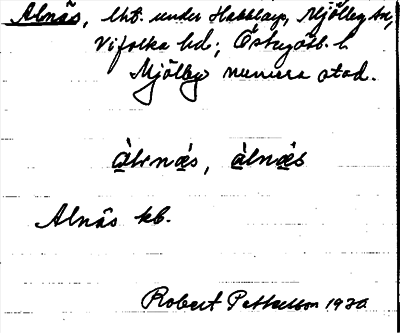 Alnäs, lht. under Habblarp, Mjölby sn,
Vifolka hd; Östergötl. l.
Mjölby numera stad.
àlnæs, àlnæs
Alnäs kb.
Robert Pettersson 1930